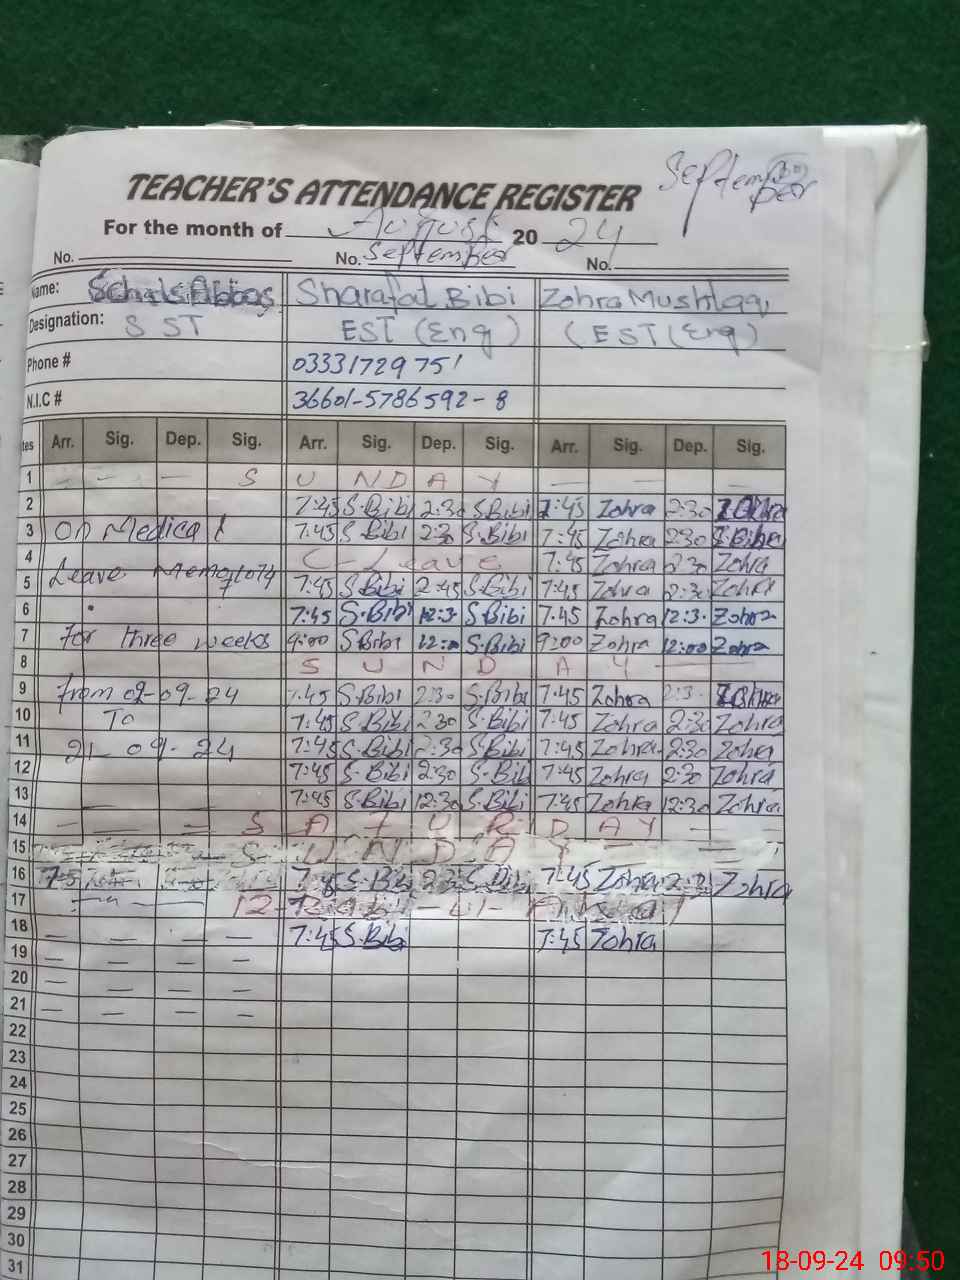 September
TEACHER'S ATTENDANCE REGISTER
For the month of August 20 24
September
No. No. No.
Name: Abbas Sharafat Bibi Zohra Mushtaq
Designation: S ST EST (Eng) (EST (Eng)
Phone # 03331729751
N.I.C # 36601-5786592-8
tes Arr. Sig. Dep. Sig. Arr. Sig. Dep. Sig. Arr. Sig. Dep. Sig.
1 — — — S U N D A Y — — —
2 7:45 S.Bibi 2:30 S.Bibi 7:45 Zohra 2:30 Zohra
3 On Medical 7:45 S.Bibi 2:30 S.Bibi 7:45 Zohra 2:30
4 C- Leave 7:45 Zohra 2:30 Zohra
5 Leave 7:45 S.Bibi 2:45 S.Bibi 7:45 Zohra 2:30 Zohra
6 7:45 S.Bibi 12:3 S.Bibi 7:45 Zohra 12:3 Zohra
7 For three weeks 9:00 S.Bibi 12:00 S.Bibi 9:00 Zohra 12:00 Zohra
8 S U N D A Y — —
9 from 02-09-24 7:45 S.Bibi 2:30 S.Bibi 7:45 Zohra 2:3 Zohra
10 To 7:45 S.Bibi 2:30 S.Bibi 7:45 Zohra 2:30 Zohra
11 21-09-24 7:45 S.Bibi 2:30 S.Bibi 7:45 Zohra 2:30 Zohra
12 7:45 S.Bibi 2:30 S.Bibi 7:45 Zohra 2:30 Zohra
13 7:45 S.Bibi 12:30 S.Bibi 7:45 Zohra 12:30 Zohra
14 — — — S A T U R D A Y — —
15 S U N D A Y — —
16 7:45 S.Bibi 2:3 S.Bibi 7:45 Zohra 2:3 Zohra
17 12-
18 — — — — 7:45 S.Bibi 7:45 Zohra
19 — — — —
20 — — — —
21 — — — —
22
23
24
25
26
27
28
29
30
31
18-09-24 09:50